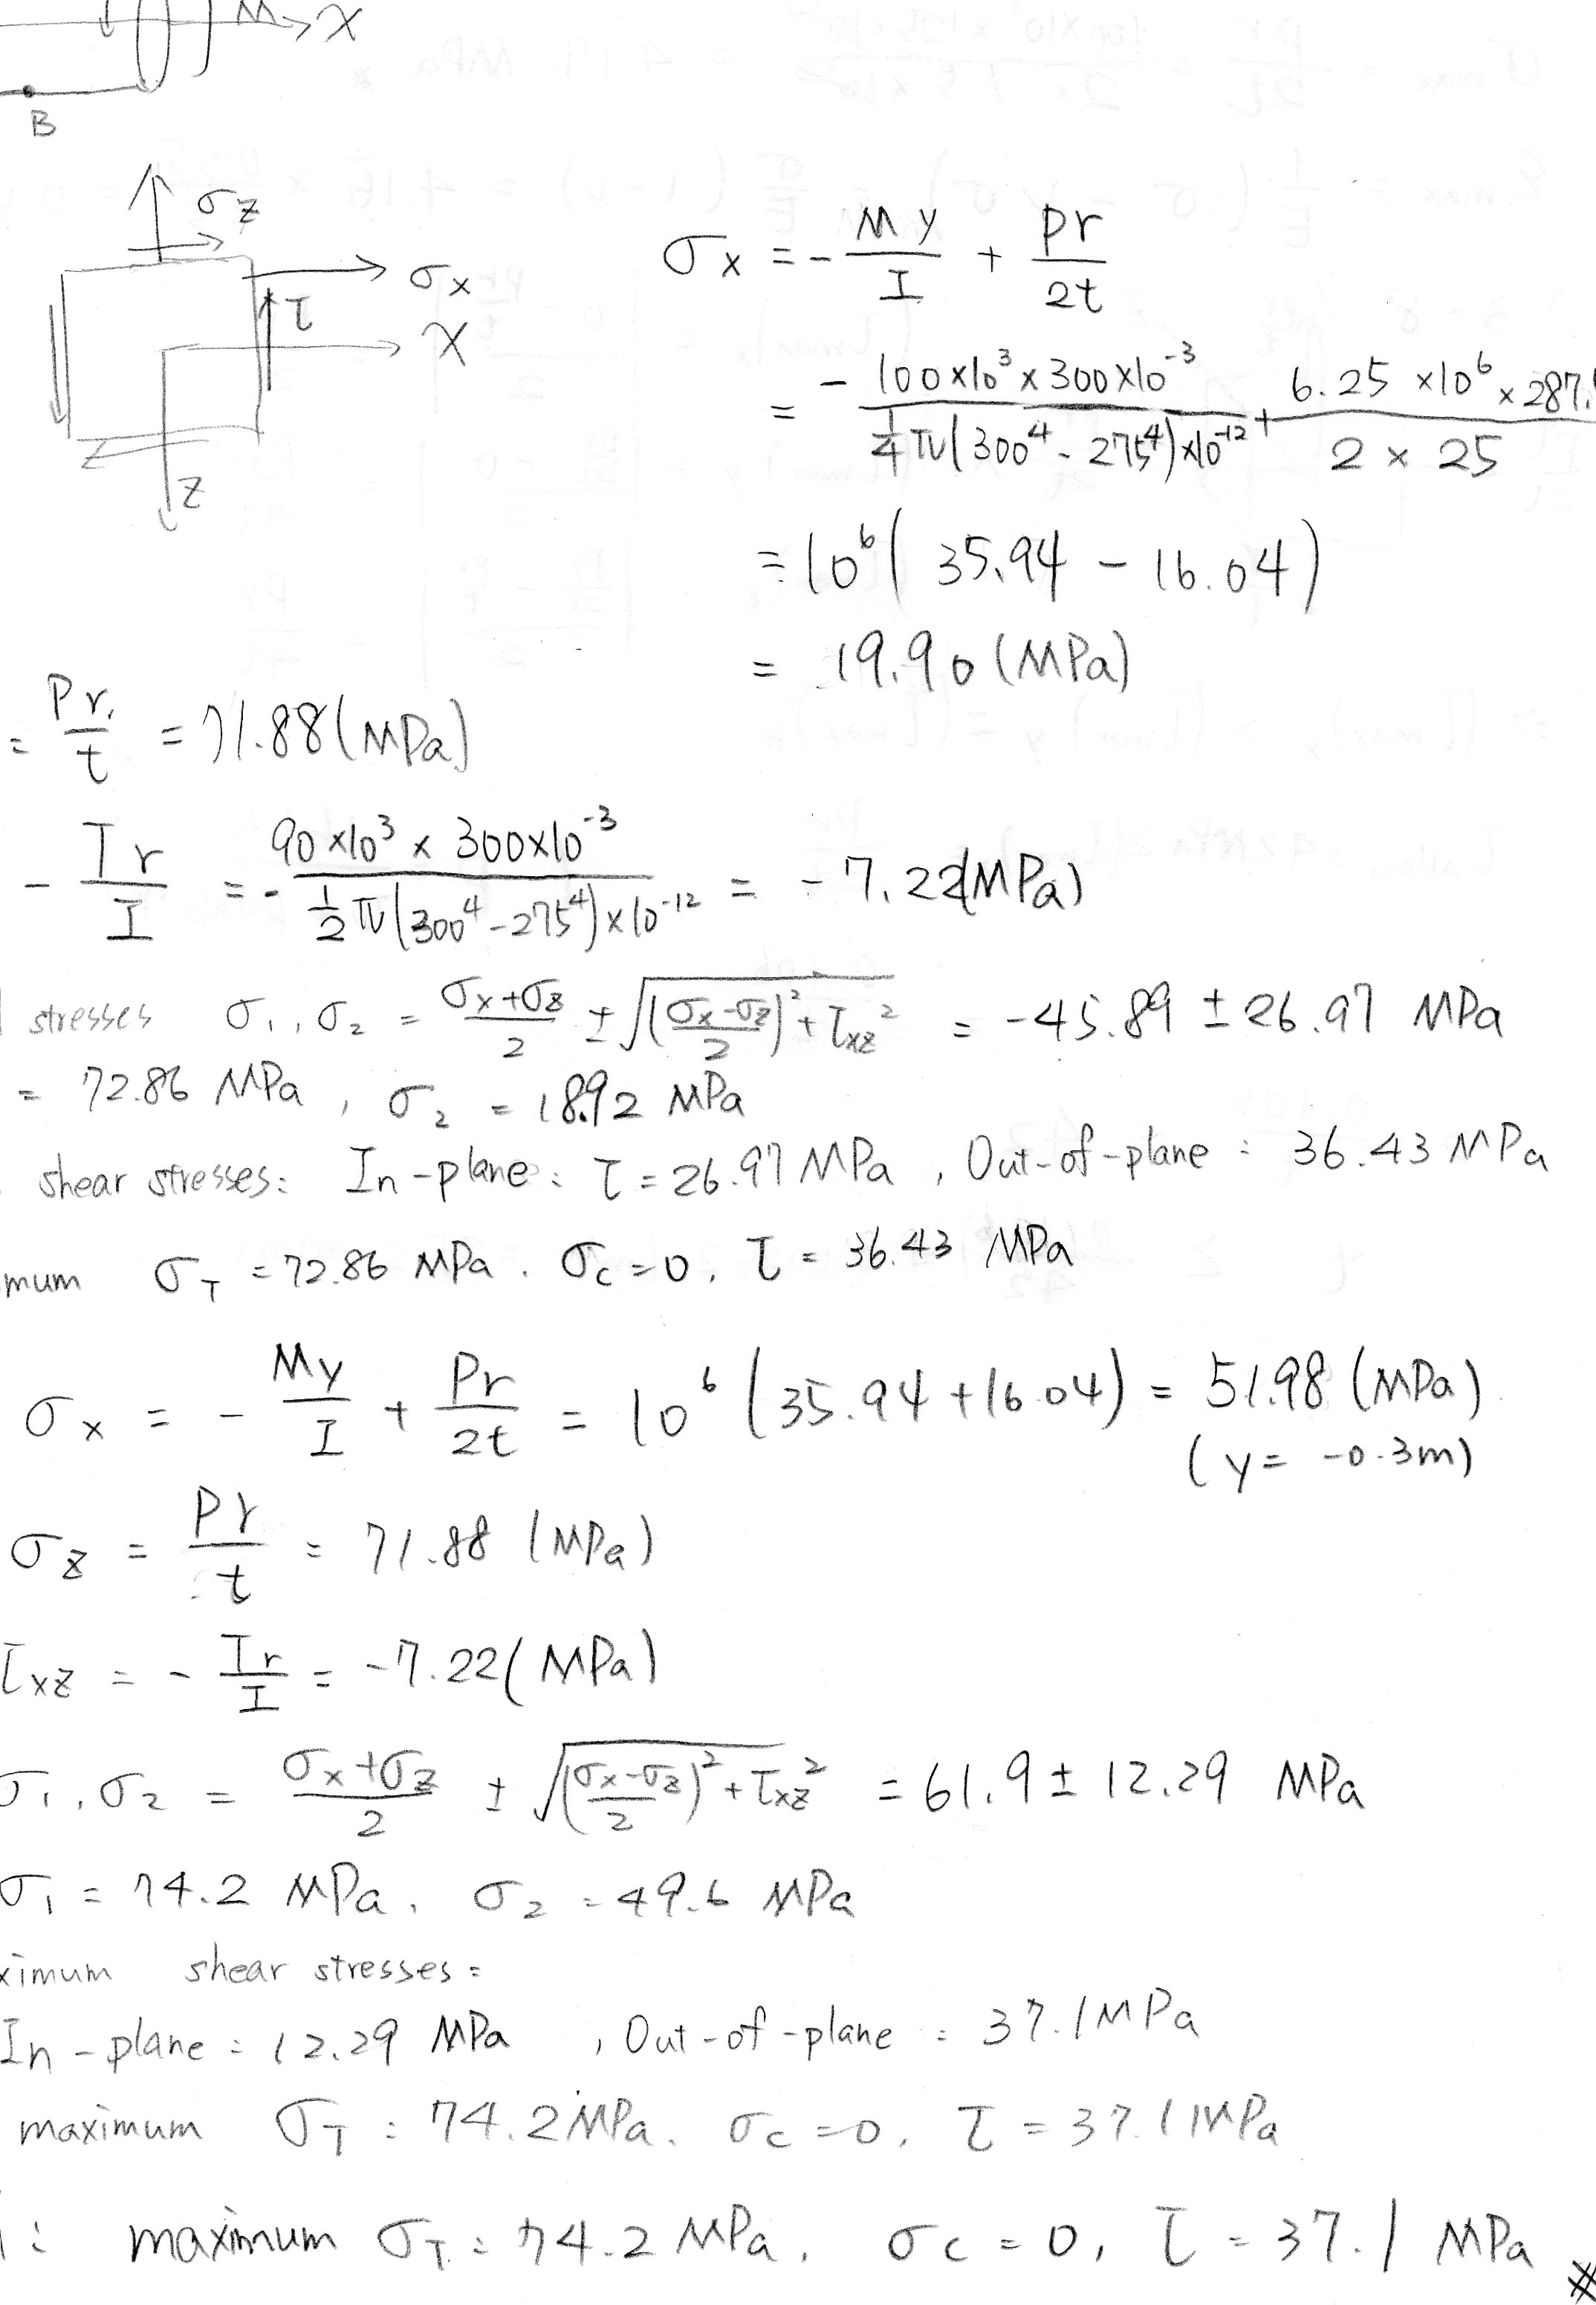 M → X
B
σz
σx
τ
X
Z
σx = - My/I + Pr/2t
= - 100×10³ × 300×10⁻³ / ¼π(300⁴ - 275⁴)×10⁻¹² + 6.25 ×10⁶ × 287. / 2 × 25
= 10⁶( 35.94 - 16.04)
= 19.90 (MPa)
= Pr/t = 71.88 (MPa)
- Tr/I = - 90×10³ × 300×10⁻³ / ½π(300⁴ - 275⁴)×10⁻¹² = - 7.22(MPa)
stresses σ1, σ2 = σx+σz/2 ± √((σx-σz/2)² + τxz²) = -45.89 ± 26.97 MPa
= 72.86 MPa, σ2 = 18.92 MPa
shear stresses: In-plane: τ = 26.97 MPa, Out-of-plane: 36.43 MPa
mum σT = 72.86 MPa. σc = 0, τ = 36.43 MPa
σx = - My/I + Pr/2t = 10⁶ (35.94 + 16.04) = 51.98 (MPa)
(y = -0.3m)
σz = Pr/t = 71.88 (MPa)
τxz = - Tr/I = -7.22 (MPa)
σ1, σ2 = σx+σz/2 ± √((σx-σz/2)² + τxz²) = 61.9 ± 12.29 MPa
σ1 = 74.2 MPa, σ2 = 49.6 MPa
ximum shear stresses:
In-plane: 12.29 MPa, Out-of-plane: 37.1MPa
maximum σT: 74.2MPa. σc = 0, τ = 37.1 MPa
: maximum σT: 74.2 MPa. σc = 0, τ = 37.1 MPa #